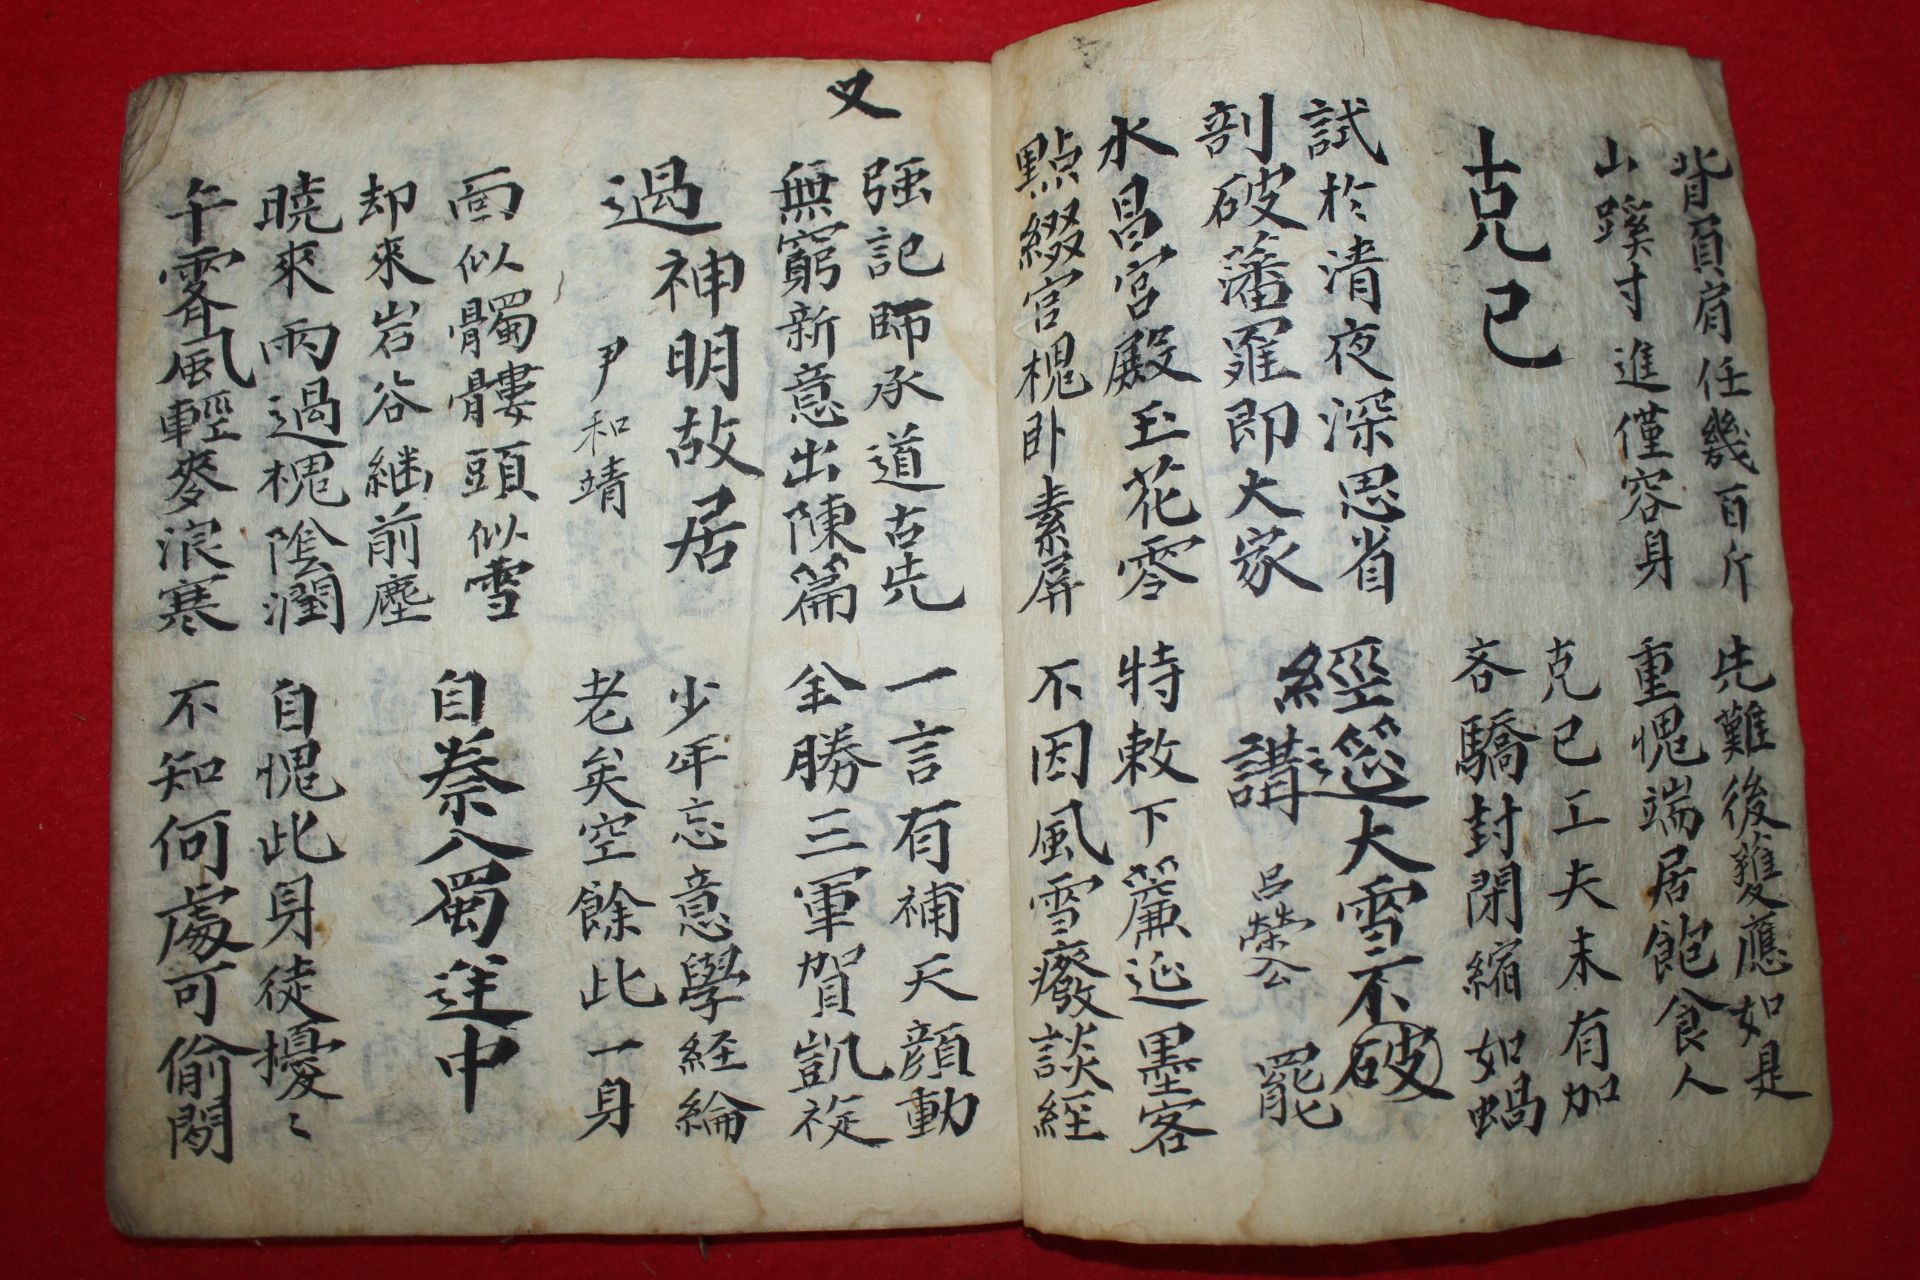 背負肩任幾百斤
山蹊寸進僅容身
先難後獲應如是
重愧端居飽食人
克己
克己工夫未有加
吝驕封閉縮如蝸
試於清夜深思省
剖破藩羅即大家
經筵大雪不破
講 呂榮公 罷
水昌宮殿玉花零
點綴宮槐卧素屏
特敕下簾延墨客
不因風雪廢談経
又
强記師承道古先
無窮新意出陳篇
一言有補天顔動
全勝三軍賀凱旋
過神明故居
尹和靖
少年忘意學経綸
老矣空餘此一身
面似髑髏頭似雪
却來岩谷継前塵
自秦入蜀道中
曉來雨過槐陰潤
午霽風輕麥浪寒
自愧此身徒擾〻
不知何處可偷閒